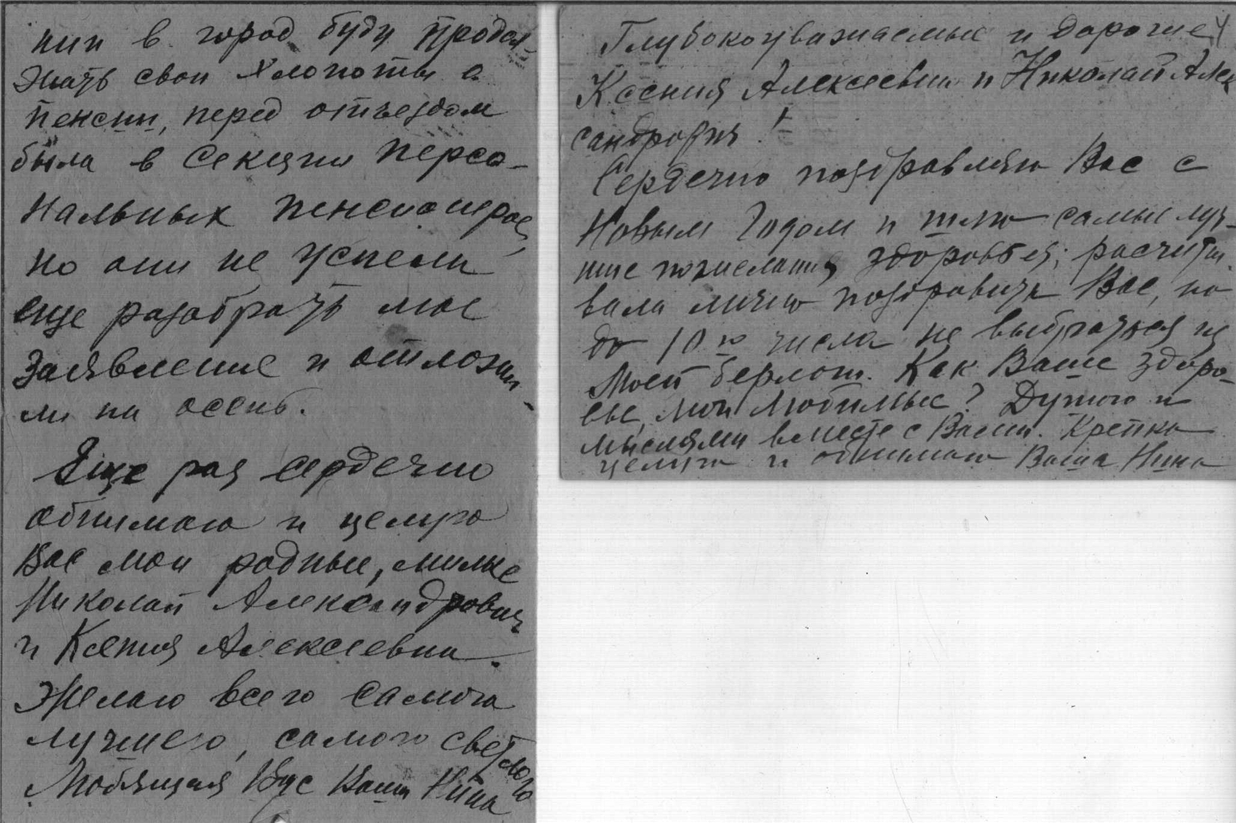 нии в город буду продол
жать свои хлопоты о
пенсии, перед отъездом
была в Секции персо-
нальных пенсионеров,
но они не успели
еще разобрать мое
заявление и отложи-
ли на осень.
Еще раз сердечно
обнимаю и целую
Вас мои родные, милые
Николай Александрович
и Ксения Алексеевна.
Желаю всего самого
лучшего, самого светлого
Любящая Вас Ваша Нина
Глубокоуважаемые и дорогие
Ксения Алексеевна и Николай Алек
сандрович!
Сердечно поздравляю Вас с
Новым Годом и шлю самые луч-
шие пожелания здоровья; расчиты
вала лично поздравить Вас, но
до 10го числа не выбраться из
моей берлоги. Как Ваше здоро-
вье, мои любимые? Душою и
мыслями вместе с Вами. Крепко
целую и обнимаю Ваша Нина